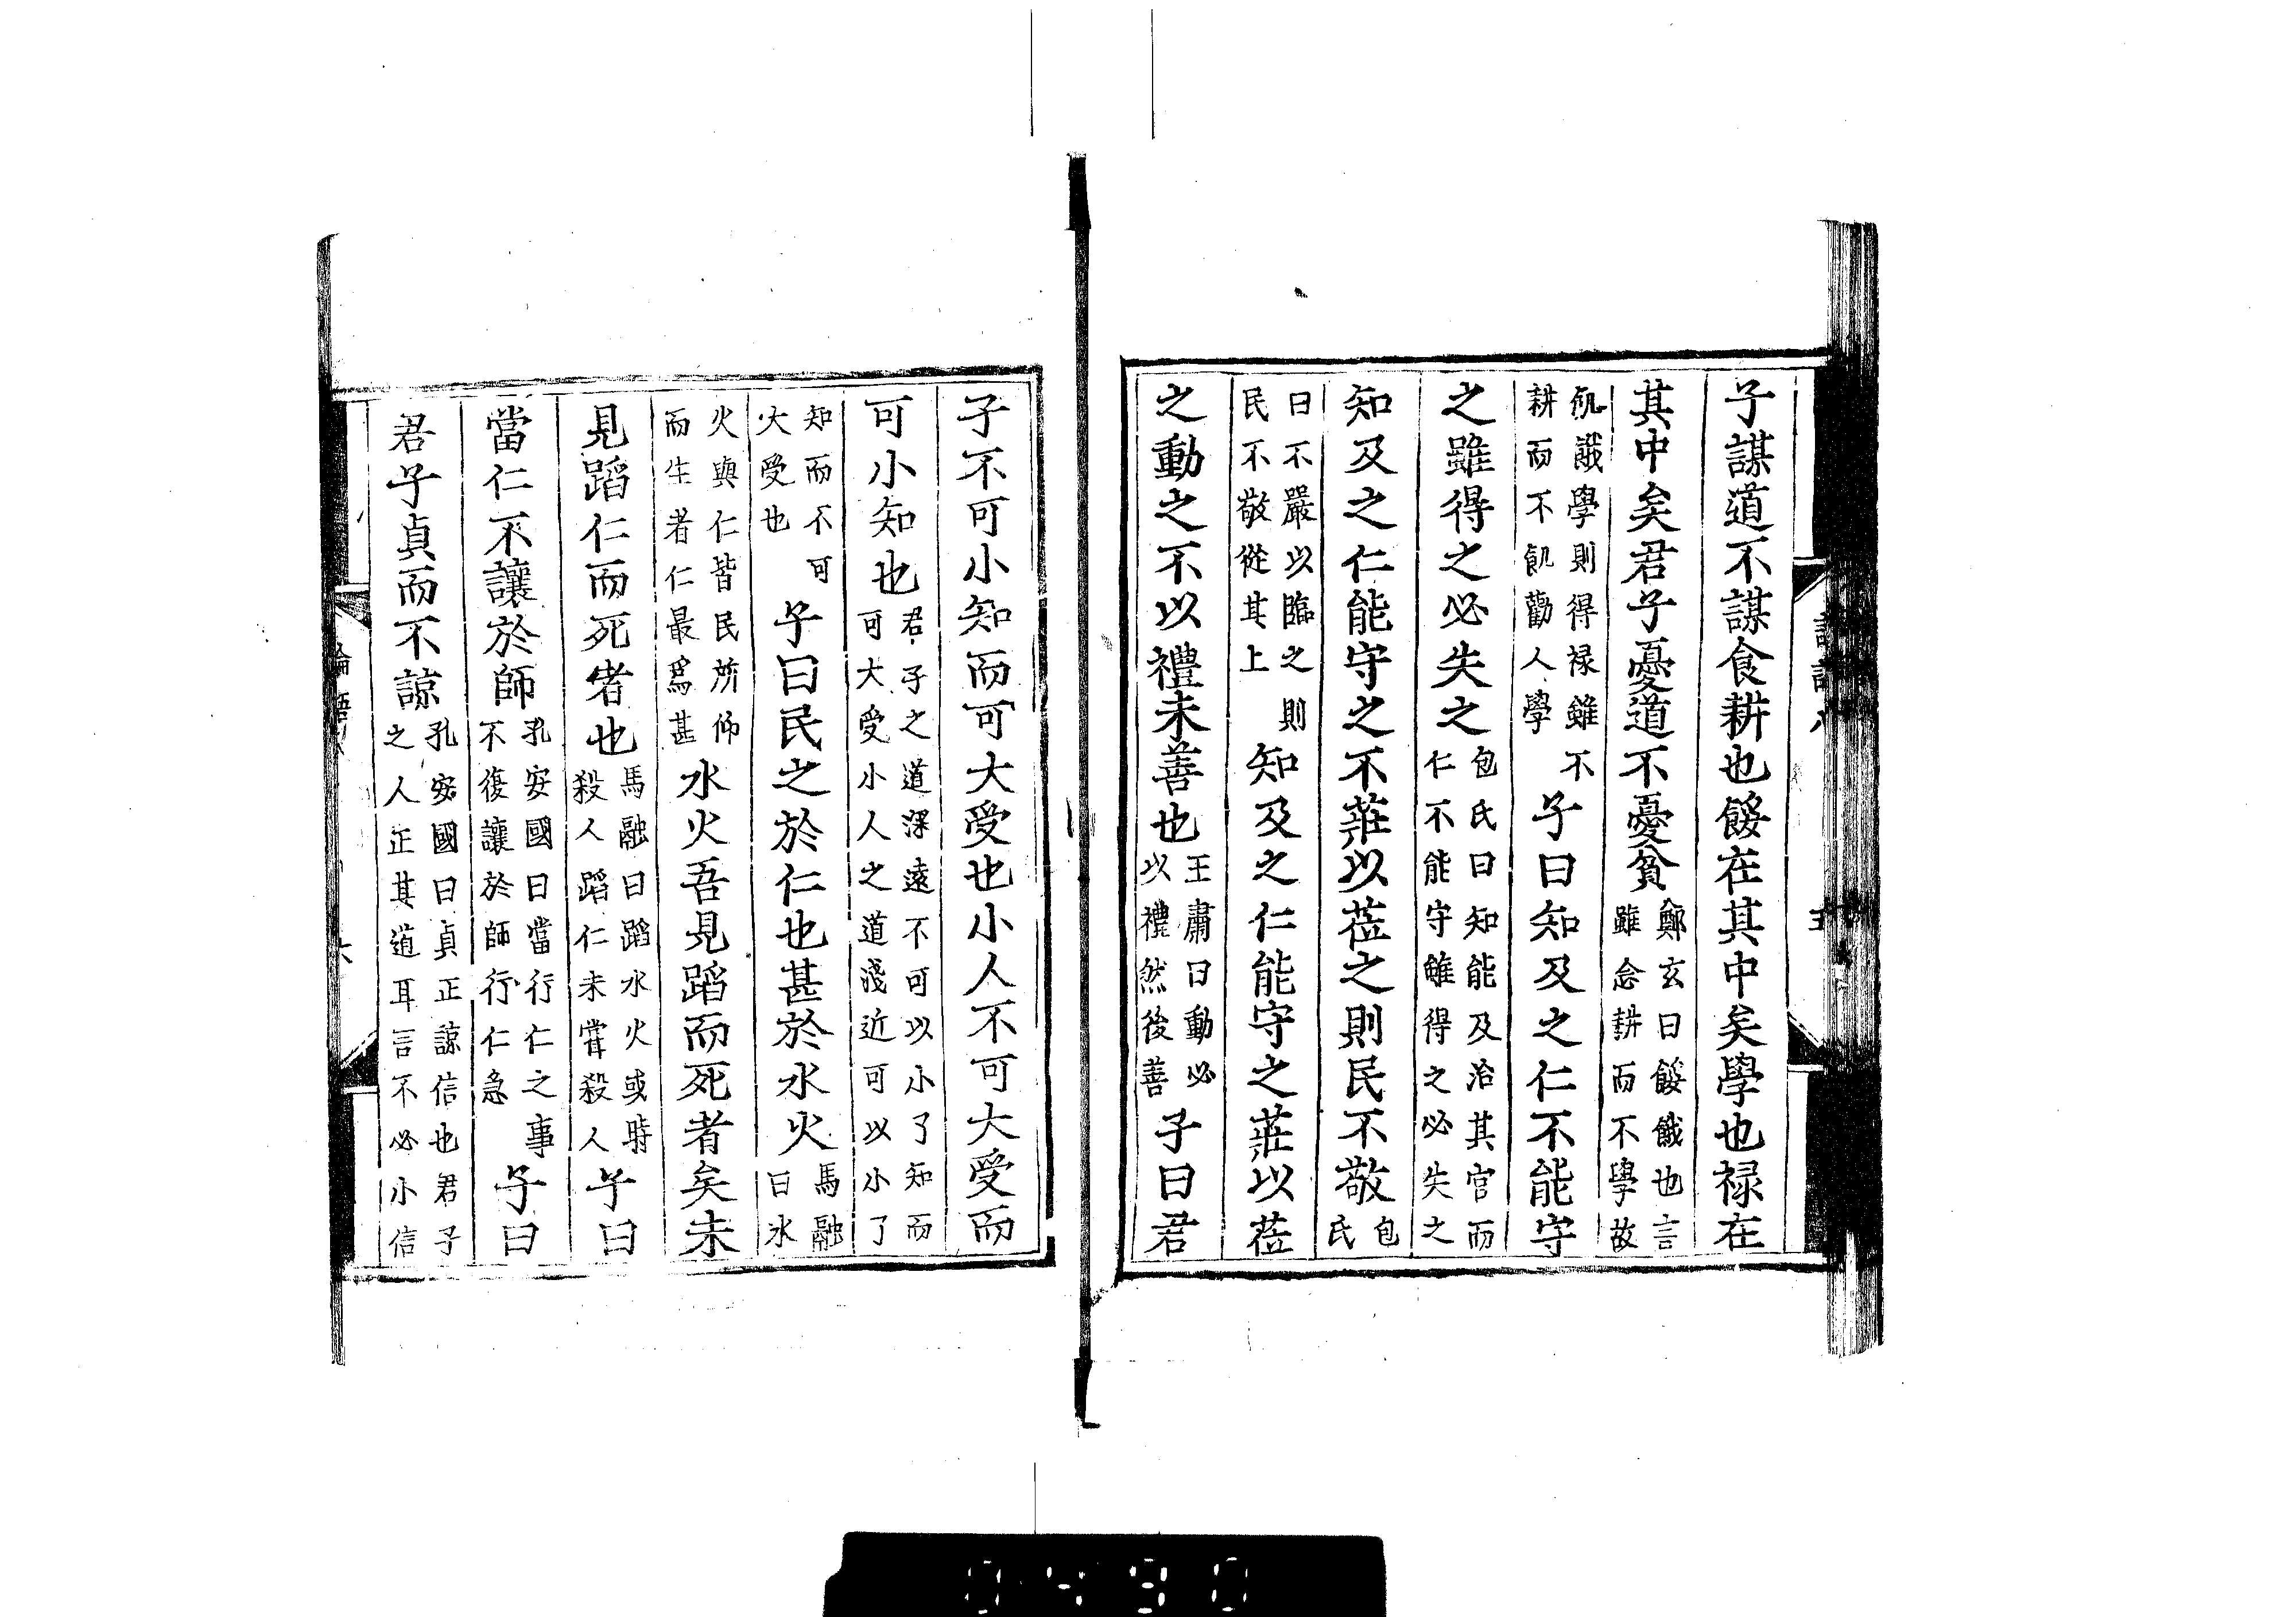 子謀道不謀食耕也餒在其中矣學也禄在
其中矣君子憂道不憂貧鄭玄曰餒餓也言雖念耕而不學故
飢餓學則得禄雖不耕而不飢勸人學子曰知及之仁不能守
之雖得之必失之包氏曰知能及治其官而仁不能守雖得之必失之
知及之仁能守之不莊以莅之則民不敬包氏
曰不嚴以臨之則民不敬從其上知及之仁能守之莊以莅
之動之不以禮未善也王肅曰動必以禮然後善子曰君
子不可小知而可大受也小人不可大受而
可小知也君子之道深遠不可以小了知而可大受小人之道淺近可以小了
知而不可大受也子曰民之於仁也甚於水火馬融曰水
火與仁皆民所仰而生者仁最爲甚水火吾見蹈而死者矣未
見蹈仁而死者也馬融曰蹈水火或時殺人蹈仁未甞殺人子曰
當仁不讓於師孔安國曰當行仁之事不復讓於師行仁急子曰
君子貞而不諒孔安國曰貞正諒信也君子之人正其道耳言不必小信
0490